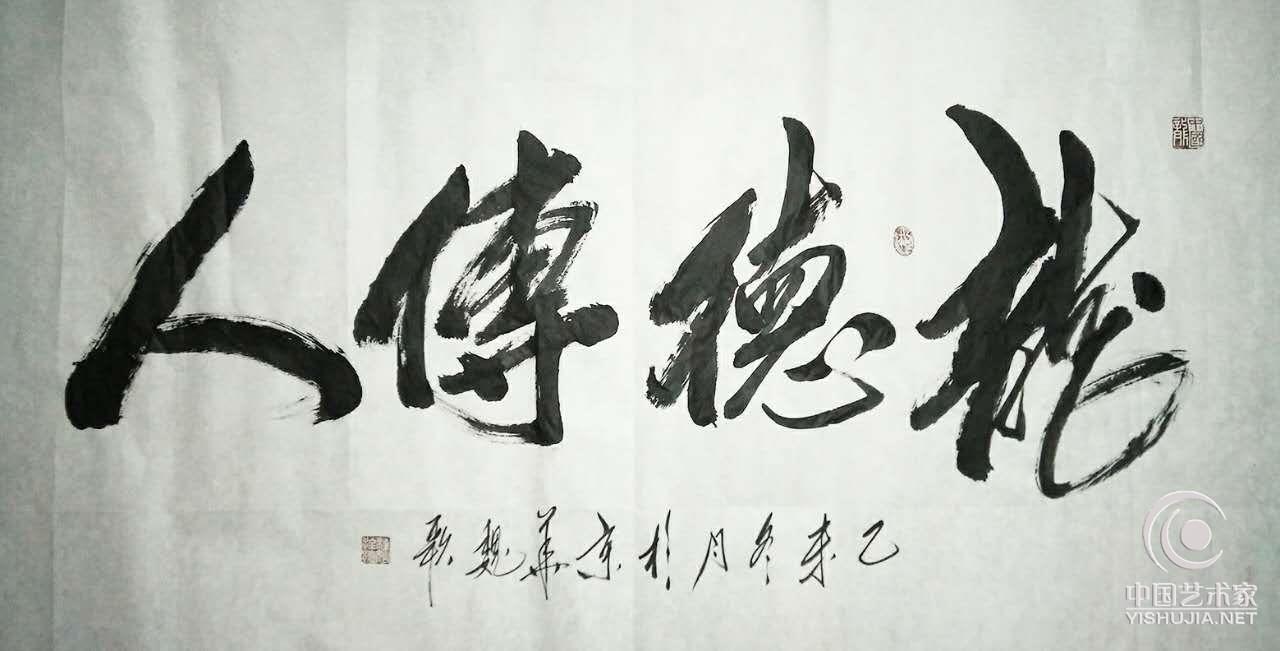 龍德傳人
乙未冬月於京華魏
中国艺术家
YISHUJIA.NET